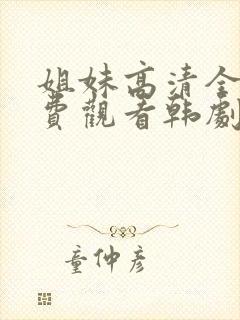 姐妹高清全
費觀看韩劇
童仲彦